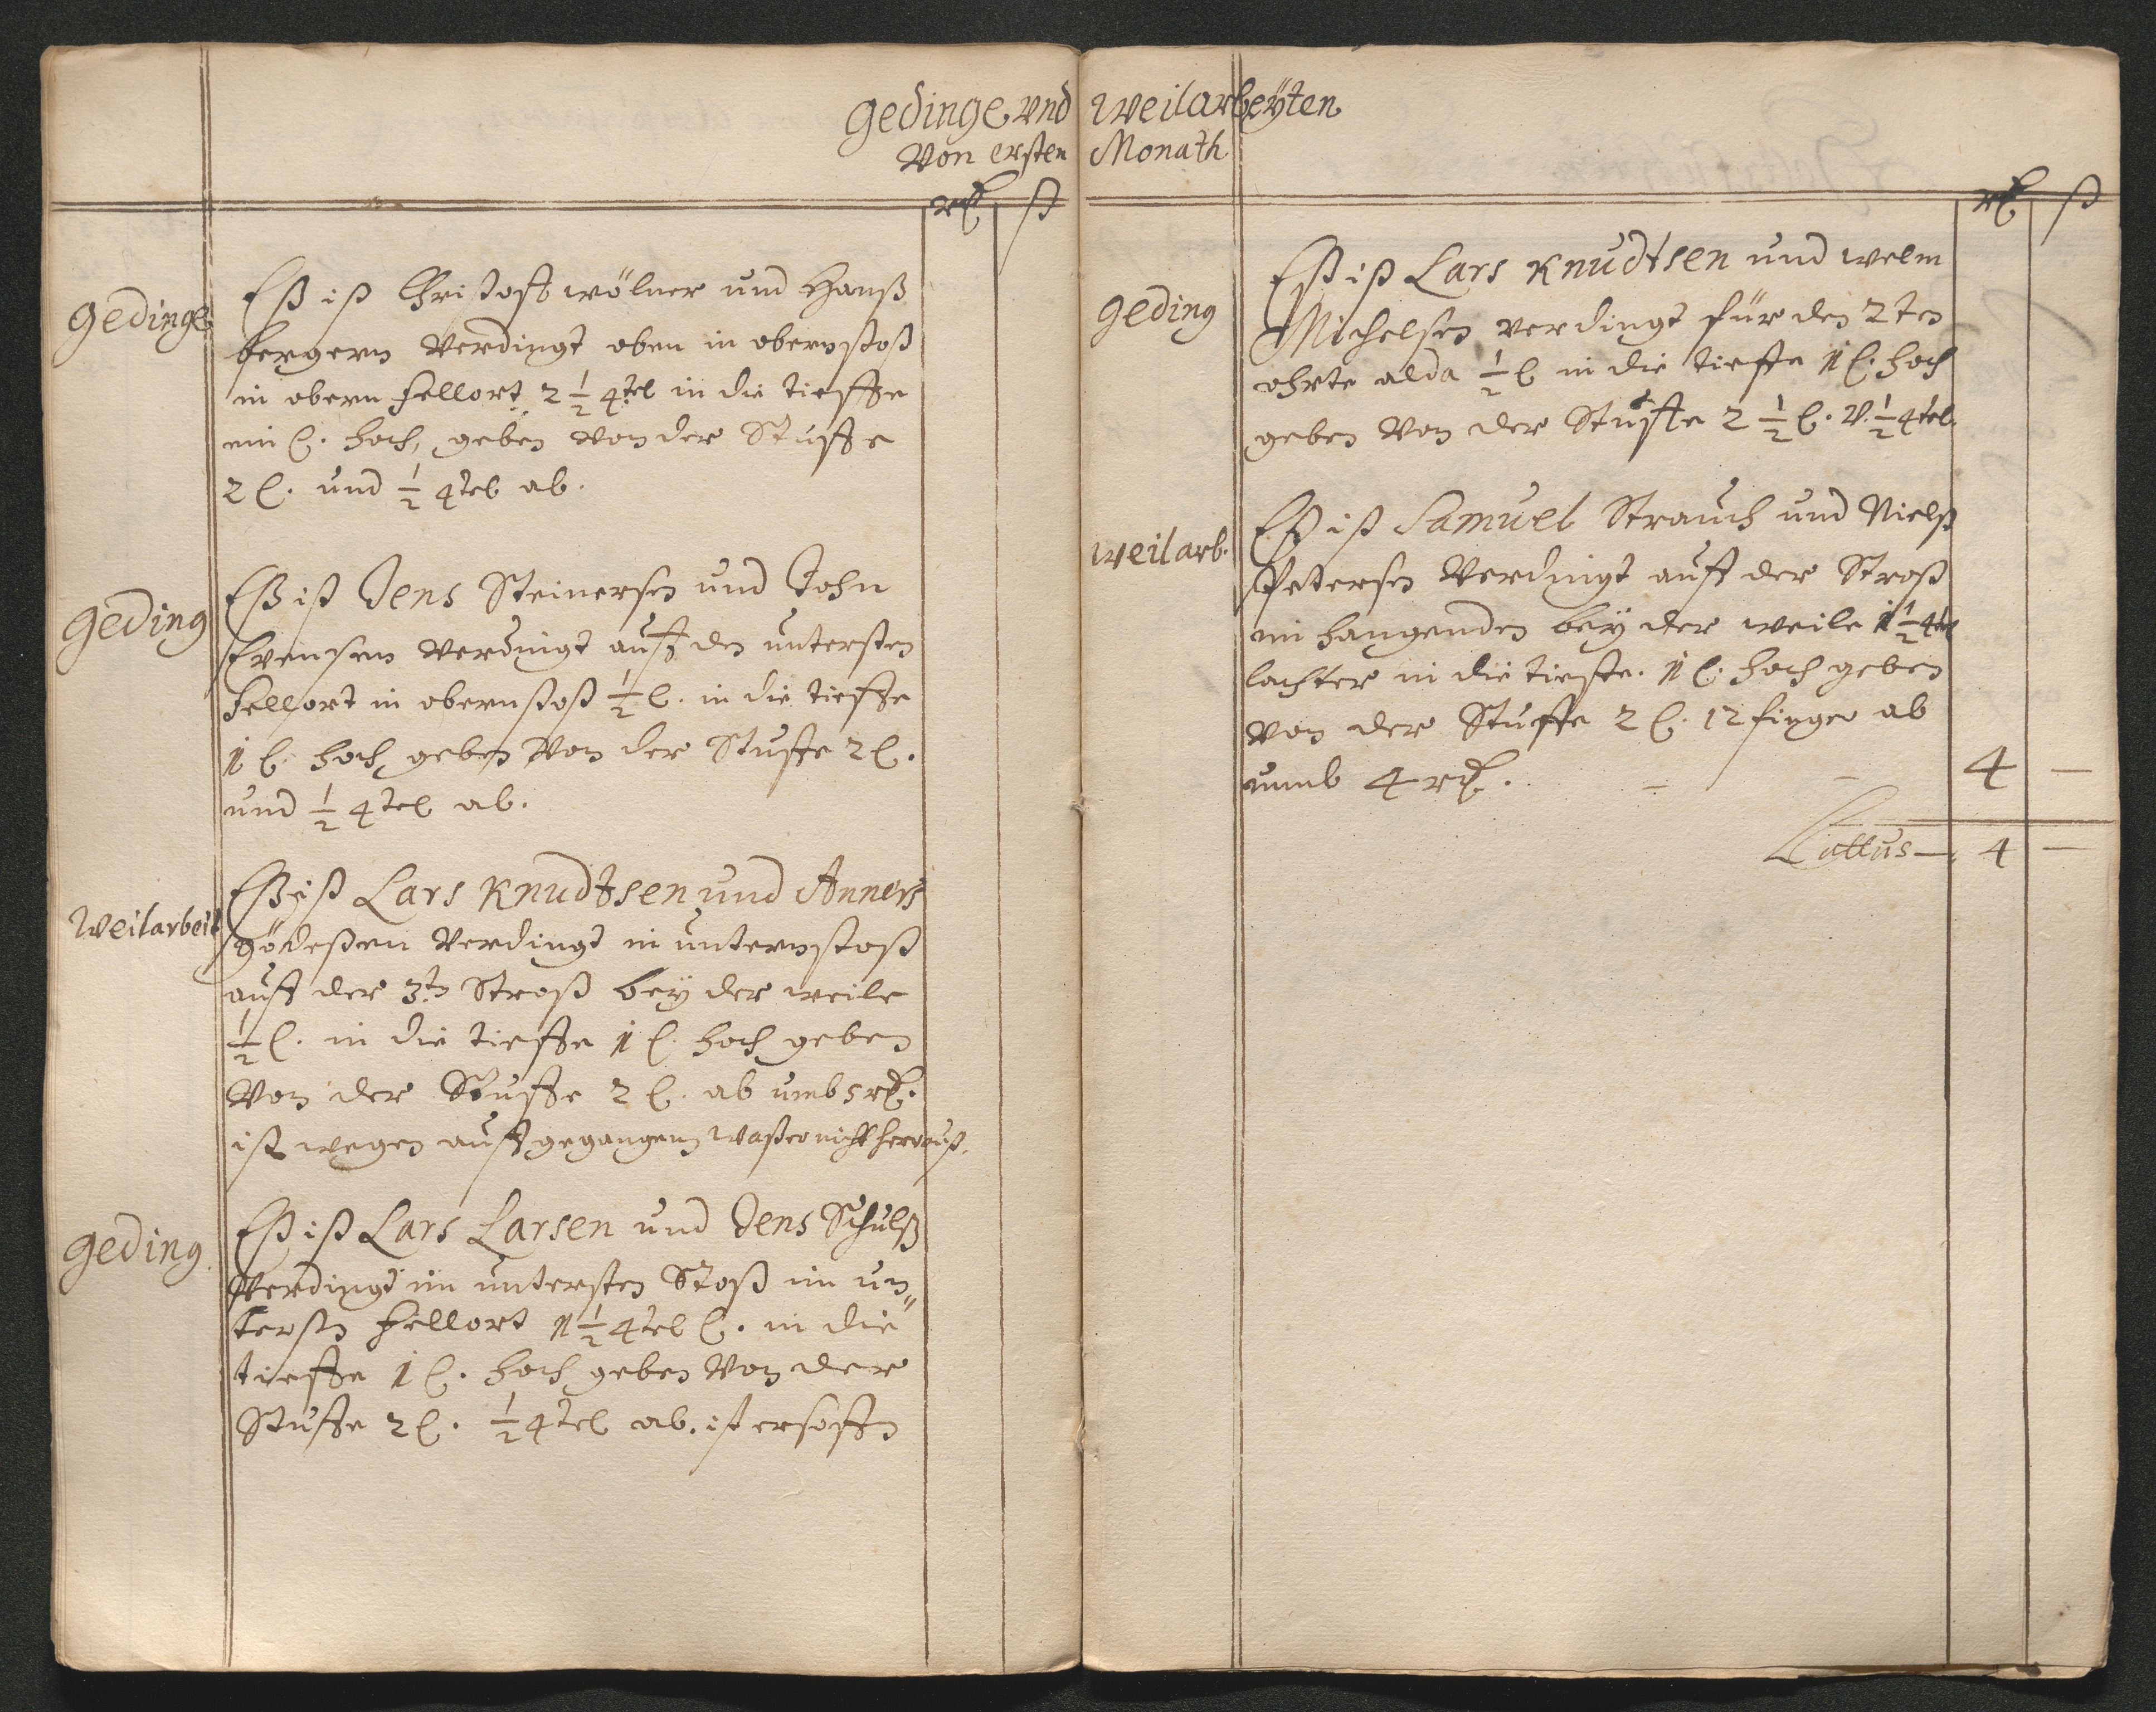 Gedinge und Weilarbeÿten
Von ersten Monath
rẜ ß
Gedinge
Eß ist Christoff Wölner und Hanß
bergern Verdingt oben in obernstoß
in obern fellort 2 1/2 4tel in die tieffe
ein l. hoch, geben von der Stuffe
2 l. und 1/2 4tel ab.
Geding
Eß ist Jens Steinersen und John
Evensen verdingt auff den untersten
fellort in obernstoß 1/2 l. in die tieffe
1 l. hoch, geben Von der Stuffe 2 l.
und 1/2 4tel ab.
Weilarbeit
Eß ist Lars Knudtsen und Anners
gödeßen Verdingt in unternstoß
auff der 3ten Stroß beÿ der weile
1/2 l. in die tieffe 1 l. hoch geben
Von der Stuffe 2 l. ab umb 5 rẜ.
ist wegen auffgegangen waßer nicht herauß.
Geding.
Eß ist Lars Larsen und Jens Schulß
Verdingt im untersten Stoß im un„
tersten fellort 1 1/2 4tel l. in die
tieffe 1 l. hoch geben Von der
Stuffe 2 l. 1/2 4tel ab. ist ersoffen
rẜ ß
Geding
Eß ist Lars Knudtsen und welm
Michelsen verdingt für den 2ten
ohrte alda 1/2 l in die tieffe 1 l. hoch
geben Von der Stuffe 2 1/2 l. V. 1/2 4tel.
Weilarb.
Eß ist Samuel Strauch und Nielß
Petersen Verdingt auff der Stroß
im hangenden beÿ der weile 1 1/2 4tel
lachter in die tieffe. 1 l. hoch geben
von der Stuffe 2 l. 12 finger ab
umb 4 rẜ. - - 4 -
Lattus - 4 -